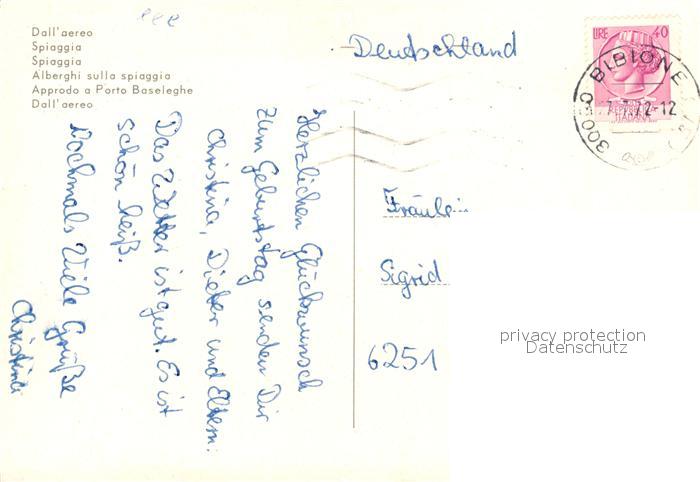 Dall'aereo
Spiaggia
Spiaggia
Alberghi sulla spiaggia
Approdo a Porto Baseleghe
Dall'aereo
Deutschland
LIRE 40
30020 BIBIONE
7.72-12
Herzlichen Glückwunsch
zum Geburtstag senden Dir
Christina, Dieter und Eltern.
Das Wetter ist gut. Es ist
schön heiß.
Nochmals Viele Grüße
Christina
Fräulein
Sigrid
6251
privacy protection
Datenschutz